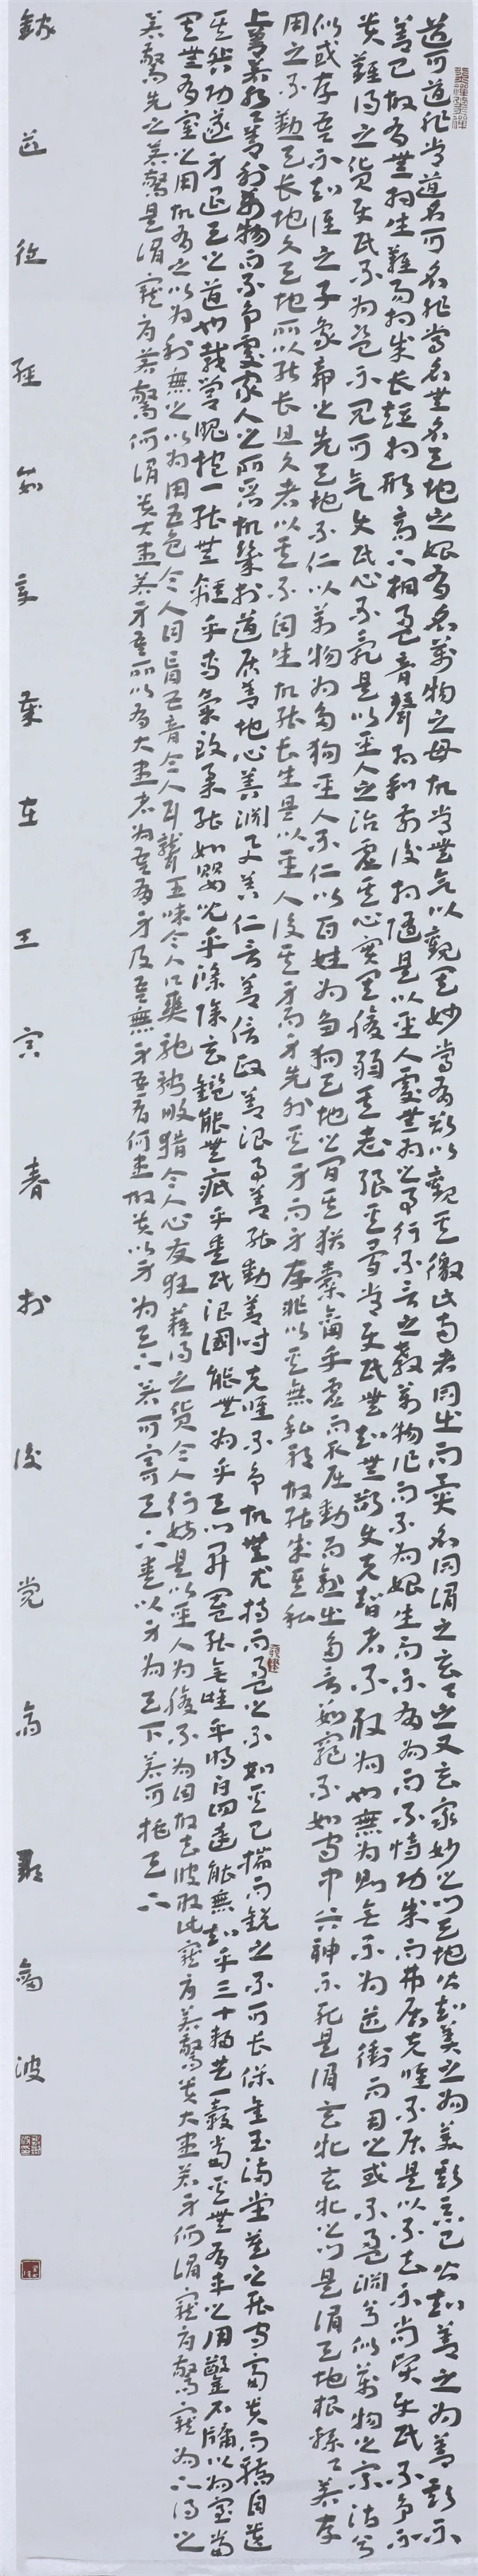 道可道非常道名可名非常名無名天地之始有名萬物之母故常無欲以觀其妙常有欲以觀其徼此兩者同出而異名同謂之玄玄之又玄眾妙之門天地皆知美之為美斯惡已皆知善之為善斯不
善已故有無相生難易相成長短相形高下相盈音聲相和前後相隨是以聖人處無為之事行不言之教萬物作而不為始生而不有為而不恃功成而弗居夫唯不居是以不去不尚賢使民不爭不
貴難得之貨使民不為盜不見可欲使民心不亂是以聖人之治虛其心實其腹弱其志強其骨常使民無知無欲使夫智者不敢為也無為則無不為道沖而用之或不盈淵兮似萬物之宗湛兮
似或存吾不知誰之子象帝之先天地不仁以萬物為芻狗聖人不仁以百姓為芻狗天地之間其猶橐籥乎虛而不屈動而愈出多言數窮不如守中谷神不死是謂玄牝玄牝之門是謂天地根綿綿若存
用之不勤天長地久天地所以能長且久者以其不自生故能長生是以聖人後其身而身先外其身而身存非以其無私邪故能成其私
上善若水水善利萬物而不爭處眾人之所惡故幾於道居善地心善淵與善仁言善信政善治事善能動善時夫唯不爭故無尤持而盈之不如其已揣而銳之不可長保金玉滿堂莫之能守富貴而驕自遺
其咎功遂身退天之道也載營魄抱一能無離乎專氣致柔能如嬰兒乎滌除玄鑒能無疵乎愛民治國能無為乎天門開闔能無雌乎明白四達能無知乎三十輻共一轂當其無有車之用鑿戶牖以為室當
其無有室之用故有之以為利無之以為用五色令人目盲五音令人耳聾五味令人口爽馳騁畋獵令人心發狂難得之貨令人行妨是以聖人為腹不為目故去彼取此寵辱若驚貴大患若身何謂寵辱驚寵為下得之
若驚失之若驚是謂寵辱若驚何謂貴大患若身吾所以有大患者為吾有身及吾無身吾有何患故貴以身為天下若可寄天下愛以身為天下若可托天下
錄道德經章在壬寅春於後高波